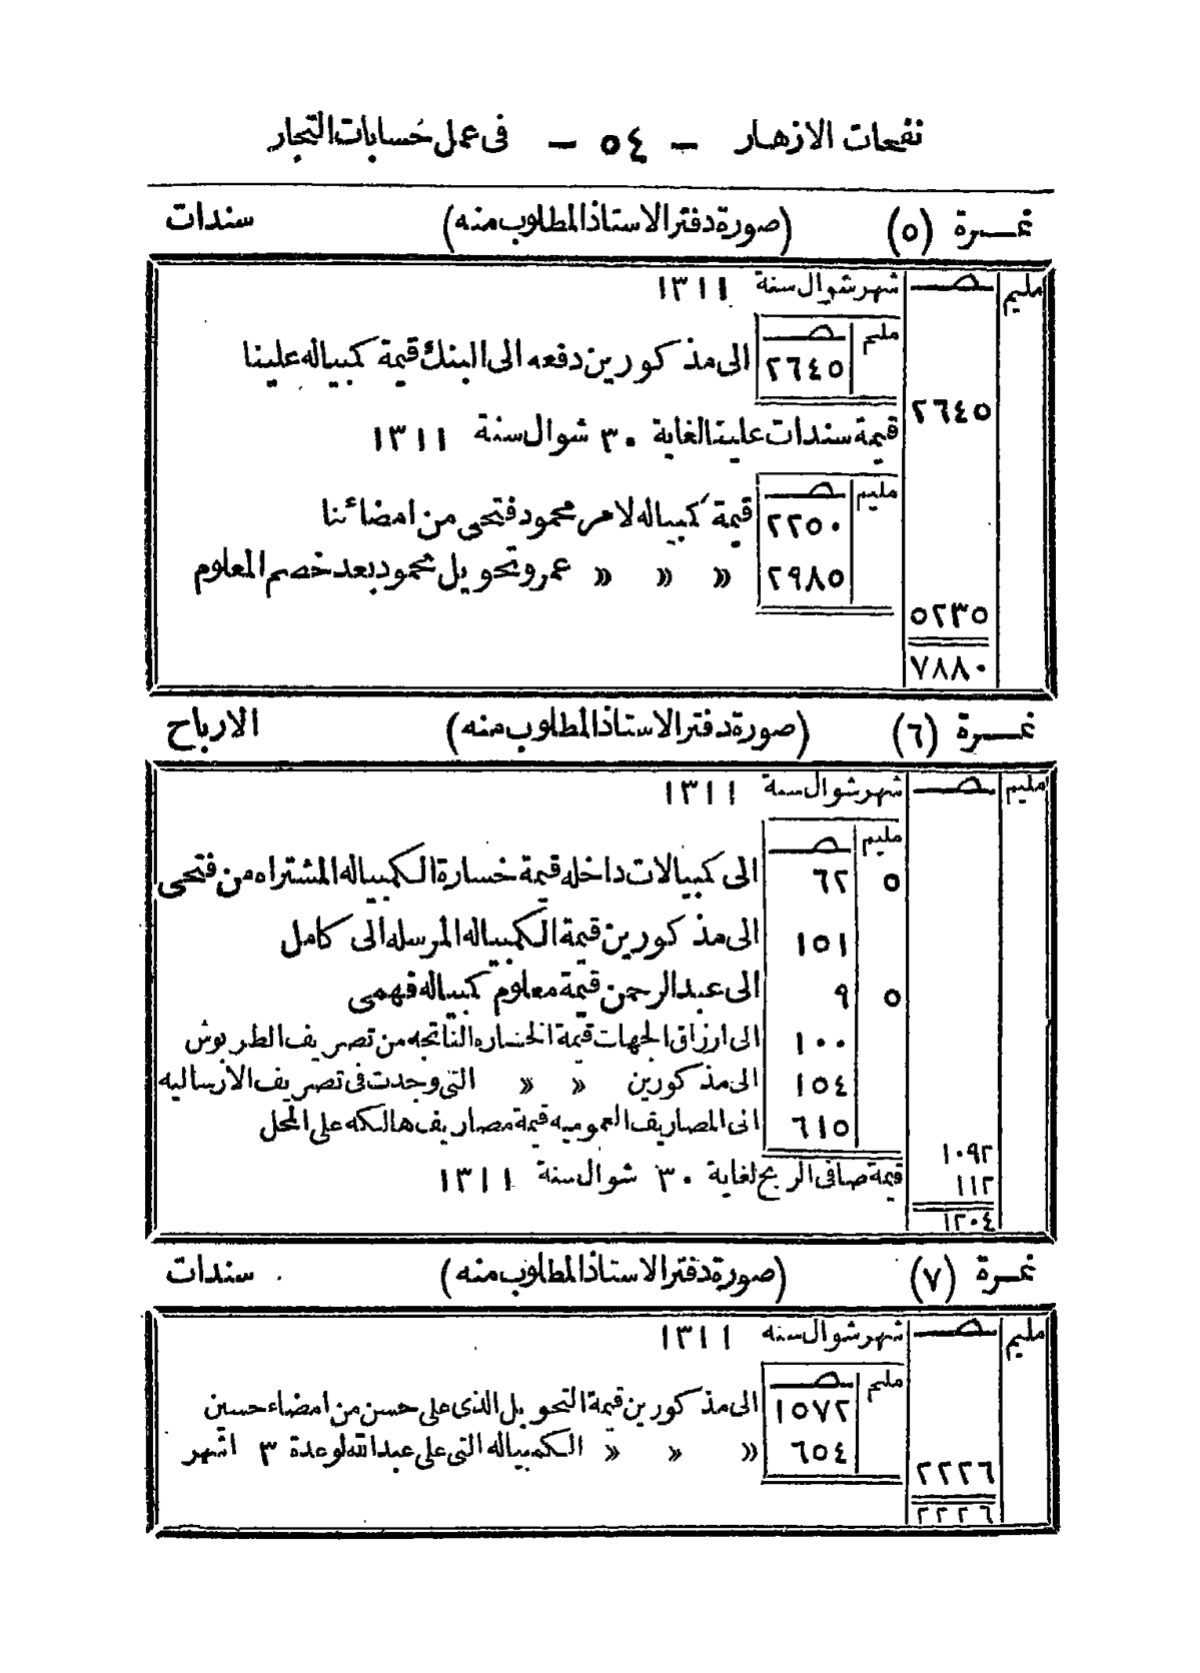 نفحات الازهار - ٥٤ - فى عمل حسابات التجار
نمرة (٥) (صورة دفتر الاستاذ المطلوب منه) سندات
مليم صـ شهر شوال سنة ١٣١١
مليم صـ
٢٦٤٥ الى مذكورين دفعه الى البنك قيمة كمبياله علينا
٢٦٤٥
قيمة سندات علينا لغاية ٣٠ شوال سنة ١٣١١
مليم صـ
٢٢٥٠ قيمة كمبياله لامر محمود فتحى من امضائنا
٢٩٨٥ » » » عمرو تحويل محمود بعد خصم المعلوم
٥٢٣٥
٧٨٨٠
نمرة (٦) (صورة دفتر الاستاذ المطلوب منه) الارباح
مليم صـ شهر شوال سنة ١٣١١
مليم صـ
٥ ٦٢ الى كمبيالات داخله قيمة خسارة الكمبياله المشتراه من فتحى
١٥١ الى مذكورين قيمة الكمبياله المرسله الى كامل
٥ ٩ الى عبد الرحمن قيمة معلوم كمبياله فهمى
١٠٠ الى ارزاق الجهات قيمة الخساره الناتجه من تصريف الطربوش
١٥٤ الى مذكورين » » التى وجدت فى تصريف الارساليه
٦١٥ الى المصاريف العموميه قيمة مصاريف هالكه على المحل
١٠٩٢
١١٢ قيمة صافى الربح لغاية ٣٠ شوال سنة ١٣١١
١٢٠٤
نمرة (٧) (صورة دفتر الاستاذ المطلوب منه) سندات
مليم صـ شهر شوال سنه ١٣١١
مليم صـ
١٥٧٢ الى مذكورين قيمة التحويل الذى على حسن من امضاء حسين
٦٥٤ » » » الكمبياله التى على عبد الله لوعدة ٣ اشهر
٢٢٢٦
٢٢٢٦